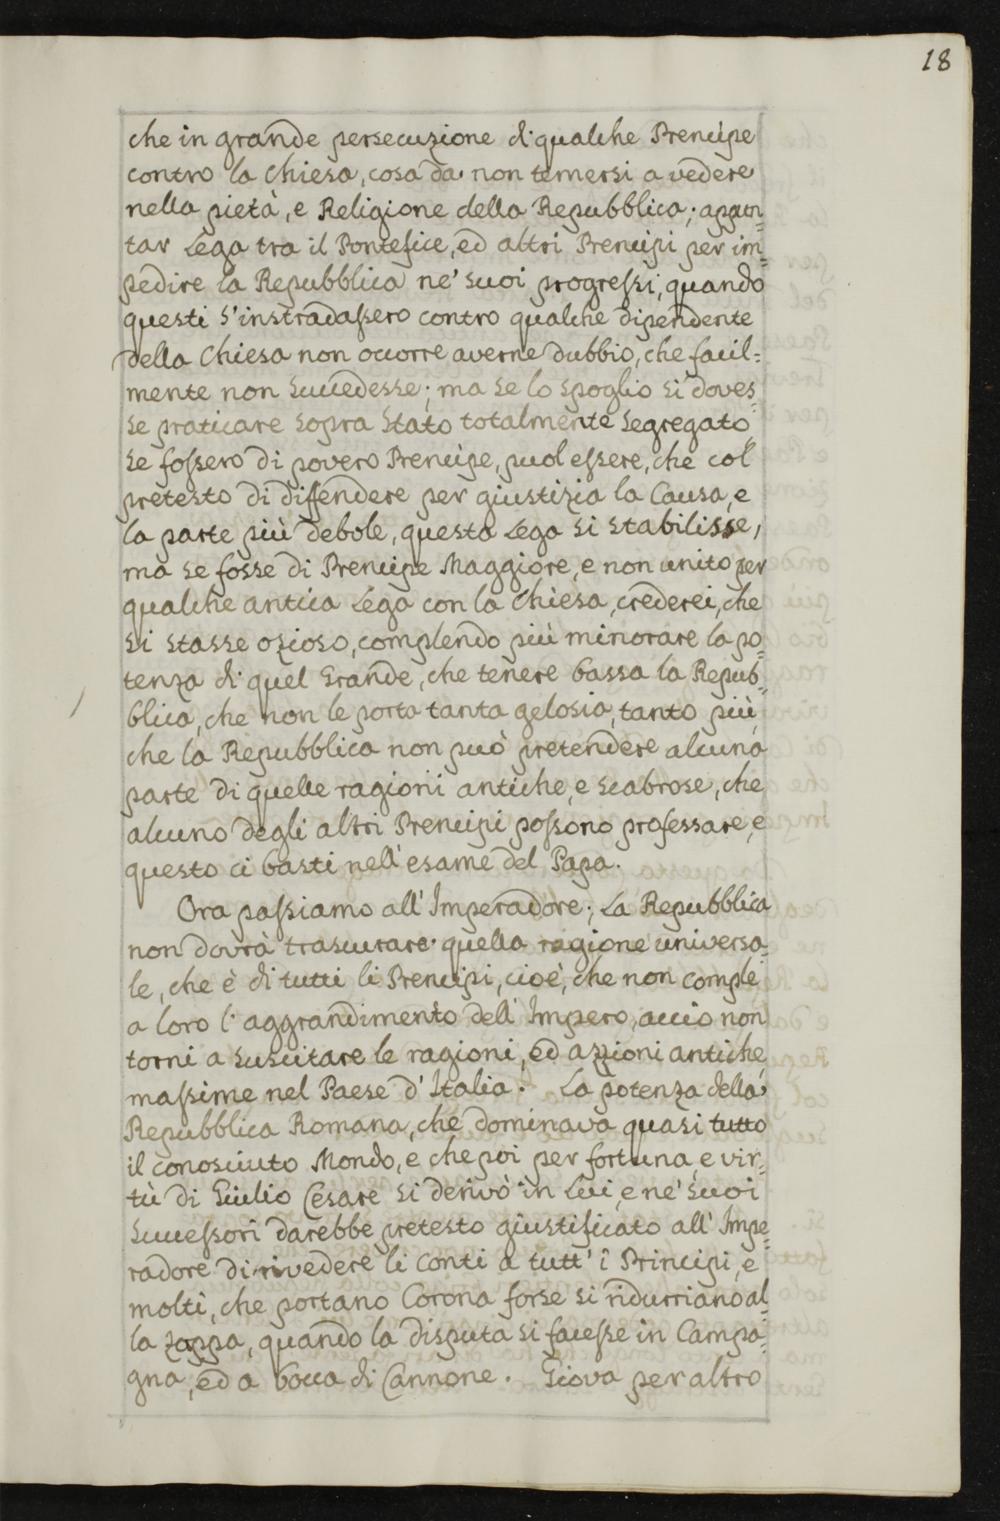 18
che in grande persecuzione di qualche Prencipe
contro la Chiesa, cosa da non temersi a vedere
nella pietà, e Religione della Repubblica; appun=
tar Lega tra il Pontefice, ed altri Prencipi per im=
pedire la Repubblica ne' suoi progressi, quando
questi s'instradassero contro qualche dipendente
della Chiesa non occorre averne dubbio, che facil=
mente non succedesse; ma se lo spoglio si doves=
se praticare sopra Stato totalmente segregato
se fossero di povero Prencipe, puol essere, che col
pretesto di diffendere per giustizia la Causa, e
la parte più debole, questa Lega si stabilisse,
ma se fosse di Prencipe Maggiore, e non unito per
qualche antica Lega con la Chiesa, crederei, che
si stasse ozioso, complendo più minorare la po=
tenza di quel Grande, che tenere bassa la Repub=
blica, che non le porta tanta gelosia, tanto più
che la Repubblica non può pretendere alcuna
parte di quelle ragioni antiche, e scabrose, che
alcuno degli altri Prencipi possono professare, e
questo ci basti nell'esame del Papa.
Ora passiamo all'Imperadore; La Repubblica
non dovrà trascurare quella ragione universa=
le, che è di tutti li Prencipi, cioè, che non comple
a loro l'aggrandimento dell'Impero, acciò non
torni a suscitare le ragioni, ed azzioni antiche
massime nel Paese d'Italia. La potenza della
Repubblica Romana, che dominava quasi tutto
il conosciuto Mondo, e che poi per fortuna, e vir=
tù di Giulio Cesare si derivò in Lui, e ne' suoi
Successori darebbe pretesto giustificato all'Impe=
radore di rivedere li conti a tutt'i Principi, e
molti, che portano Corona forse si ridurriano al=
la zappa, quando la disputa si facesse in Campa=
gna, ed a bocca di Cannone. Giova per altro